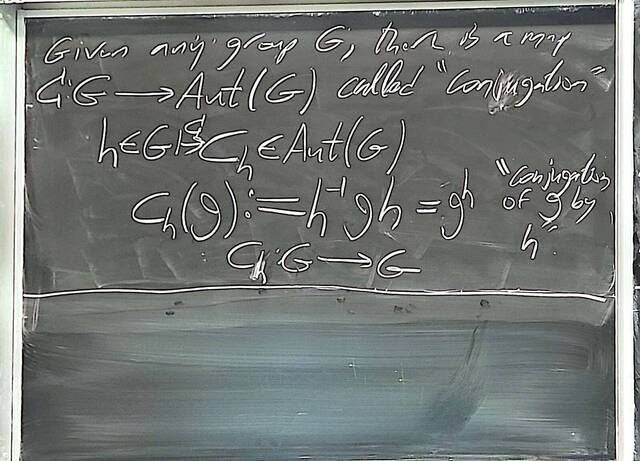 Given any group G, there is a map
C: G → Aut(G) called "conjugation"
h ∈ G ↦ C_h ∈ Aut(G)
C_h(g) := h⁻¹gh = g^h
"conjugation
of g by
h".
C_h: G → G